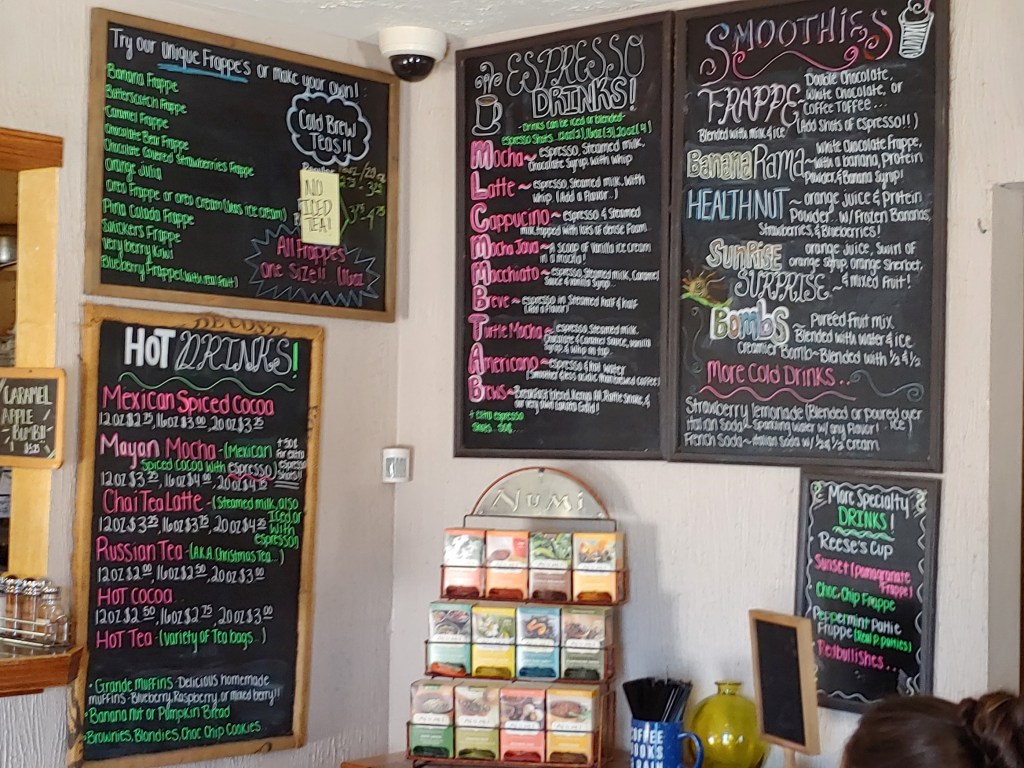 Try our unique Frappe's or make your own! :
Banana Frappe
Butterscotch Frappe
Caramel Frappe
Chocolate Bear Frappe
Chocolate Covered Strawberries Frappe
Orange Julia
Oreo Frappe or oreo Cream (has ice cream)
Pina Colada Frappe
Snickers Frappe
Very Berry Kiwi
Blueberry Frappe (with real fruit)
Cold Brew
Teas!!
NO
ICED
TEA!
All Frappes
one Size!! (16oz
HOT DRINKS!
Mexican Spiced Cocoa
12oz $2.75, 16oz $3.00, 20oz $3.25
Mayan Mocha - (Mexican
Spiced Cocoa with espresso)
+50¢
for extra
espresso
Shots!!
12oz $3.25, 16oz $4.00, 20oz $4.75
Chai Tea Latte - (Steamed milk, also
Iced or
with
espresso)
12oz $3.25, 16oz $3.75, 20oz $4.25
Russian Tea - (A.K.A Christmas Tea...)
12oz $2.00, 16oz $2.50, 20oz $3.00
Hot Cocoa...
12oz $2.50, 16oz $2.75, 20oz $3.00
Hot Tea - (variety of Tea bags..)
• Grande muffins - Delicious homemade
muffins - Blueberry, Raspberry, or mixed berry!!
• Banana nut or Pumpkin Bread
• Brownies, Blondies, Choc Chip Cookies
CARAMEL
APPLE
BOMB!!
ESPRESSO
DRINKS!
- Drinks can be iced or blended -
espresso Shots.. 12oz(2), 16oz(3), 20oz(4)
Mocha ~ espresso, Steamed milk,
Chocolate Syrup, with whip
Latte ~ espresso, Steamed milk, with
whip. (Add a Flavor..)
Cappuccino ~ espresso & Steamed
milk, topped with lots of dense Foam.
Mocha Java ~ A scoop of Vanilla ice cream
in a mocha!
Macchiato ~ espresso, Steamed milk, Caramel
Sauce & Vanilla Syrup...
Breve ~ espresso in Steamed half & half
(Add a Flavor)
Turtle Mocha ~ espresso, Steamed milk,
Chocolate & Caramel Sauce, vanilla
Syrup, & whip on top..
Americano ~ espresso & hot water
(Smoother & less acidic than brewed coffee)
Brews ~ Breakfast blend, Kenya AA, Rattle Snake, &
our very own Lakota Gold!
+ extra espresso
Shots.. 50¢...
SMOOTHIES
FRAPPE
Double Chocolate,
White Chocolate, or
Coffee Toffee...
Blended with milk & ice (Add Shots of espresso!!)
BananaRama ~ White Chocolate Frappe,
with a banana, Protein
Powder, & Banana Syrup!
HEALTHNUT ~ orange juice & Protein
Powder.. w/ Frozen Bananas,
Strawberries, & Blueberries!
Sunrise
SURPRISE ~ orange juice, Swirl of
orange Syrup, orange Sherbet,
& mixed Fruit!
Bombs ~ Pureed Fruit mix
Blended with water & ice
Creamier Bomb ~ Blended with ½ & ½
More Cold Drinks..
Strawberry lemonade (Blended or poured over
ice)
Italian Soda ~ Sparkling water w/ any Flavor!
French Soda ~ Italian Soda w/ ½ & ½ cream
NUMI
More Specialty
DRINKS!
• Reese's Cup
Sunset (pomagranate
Frappe)
Choc. Chip Frappe
Peppermint Pattie
Frappe (Real p. patties)
Redbullishes...
COFFEE